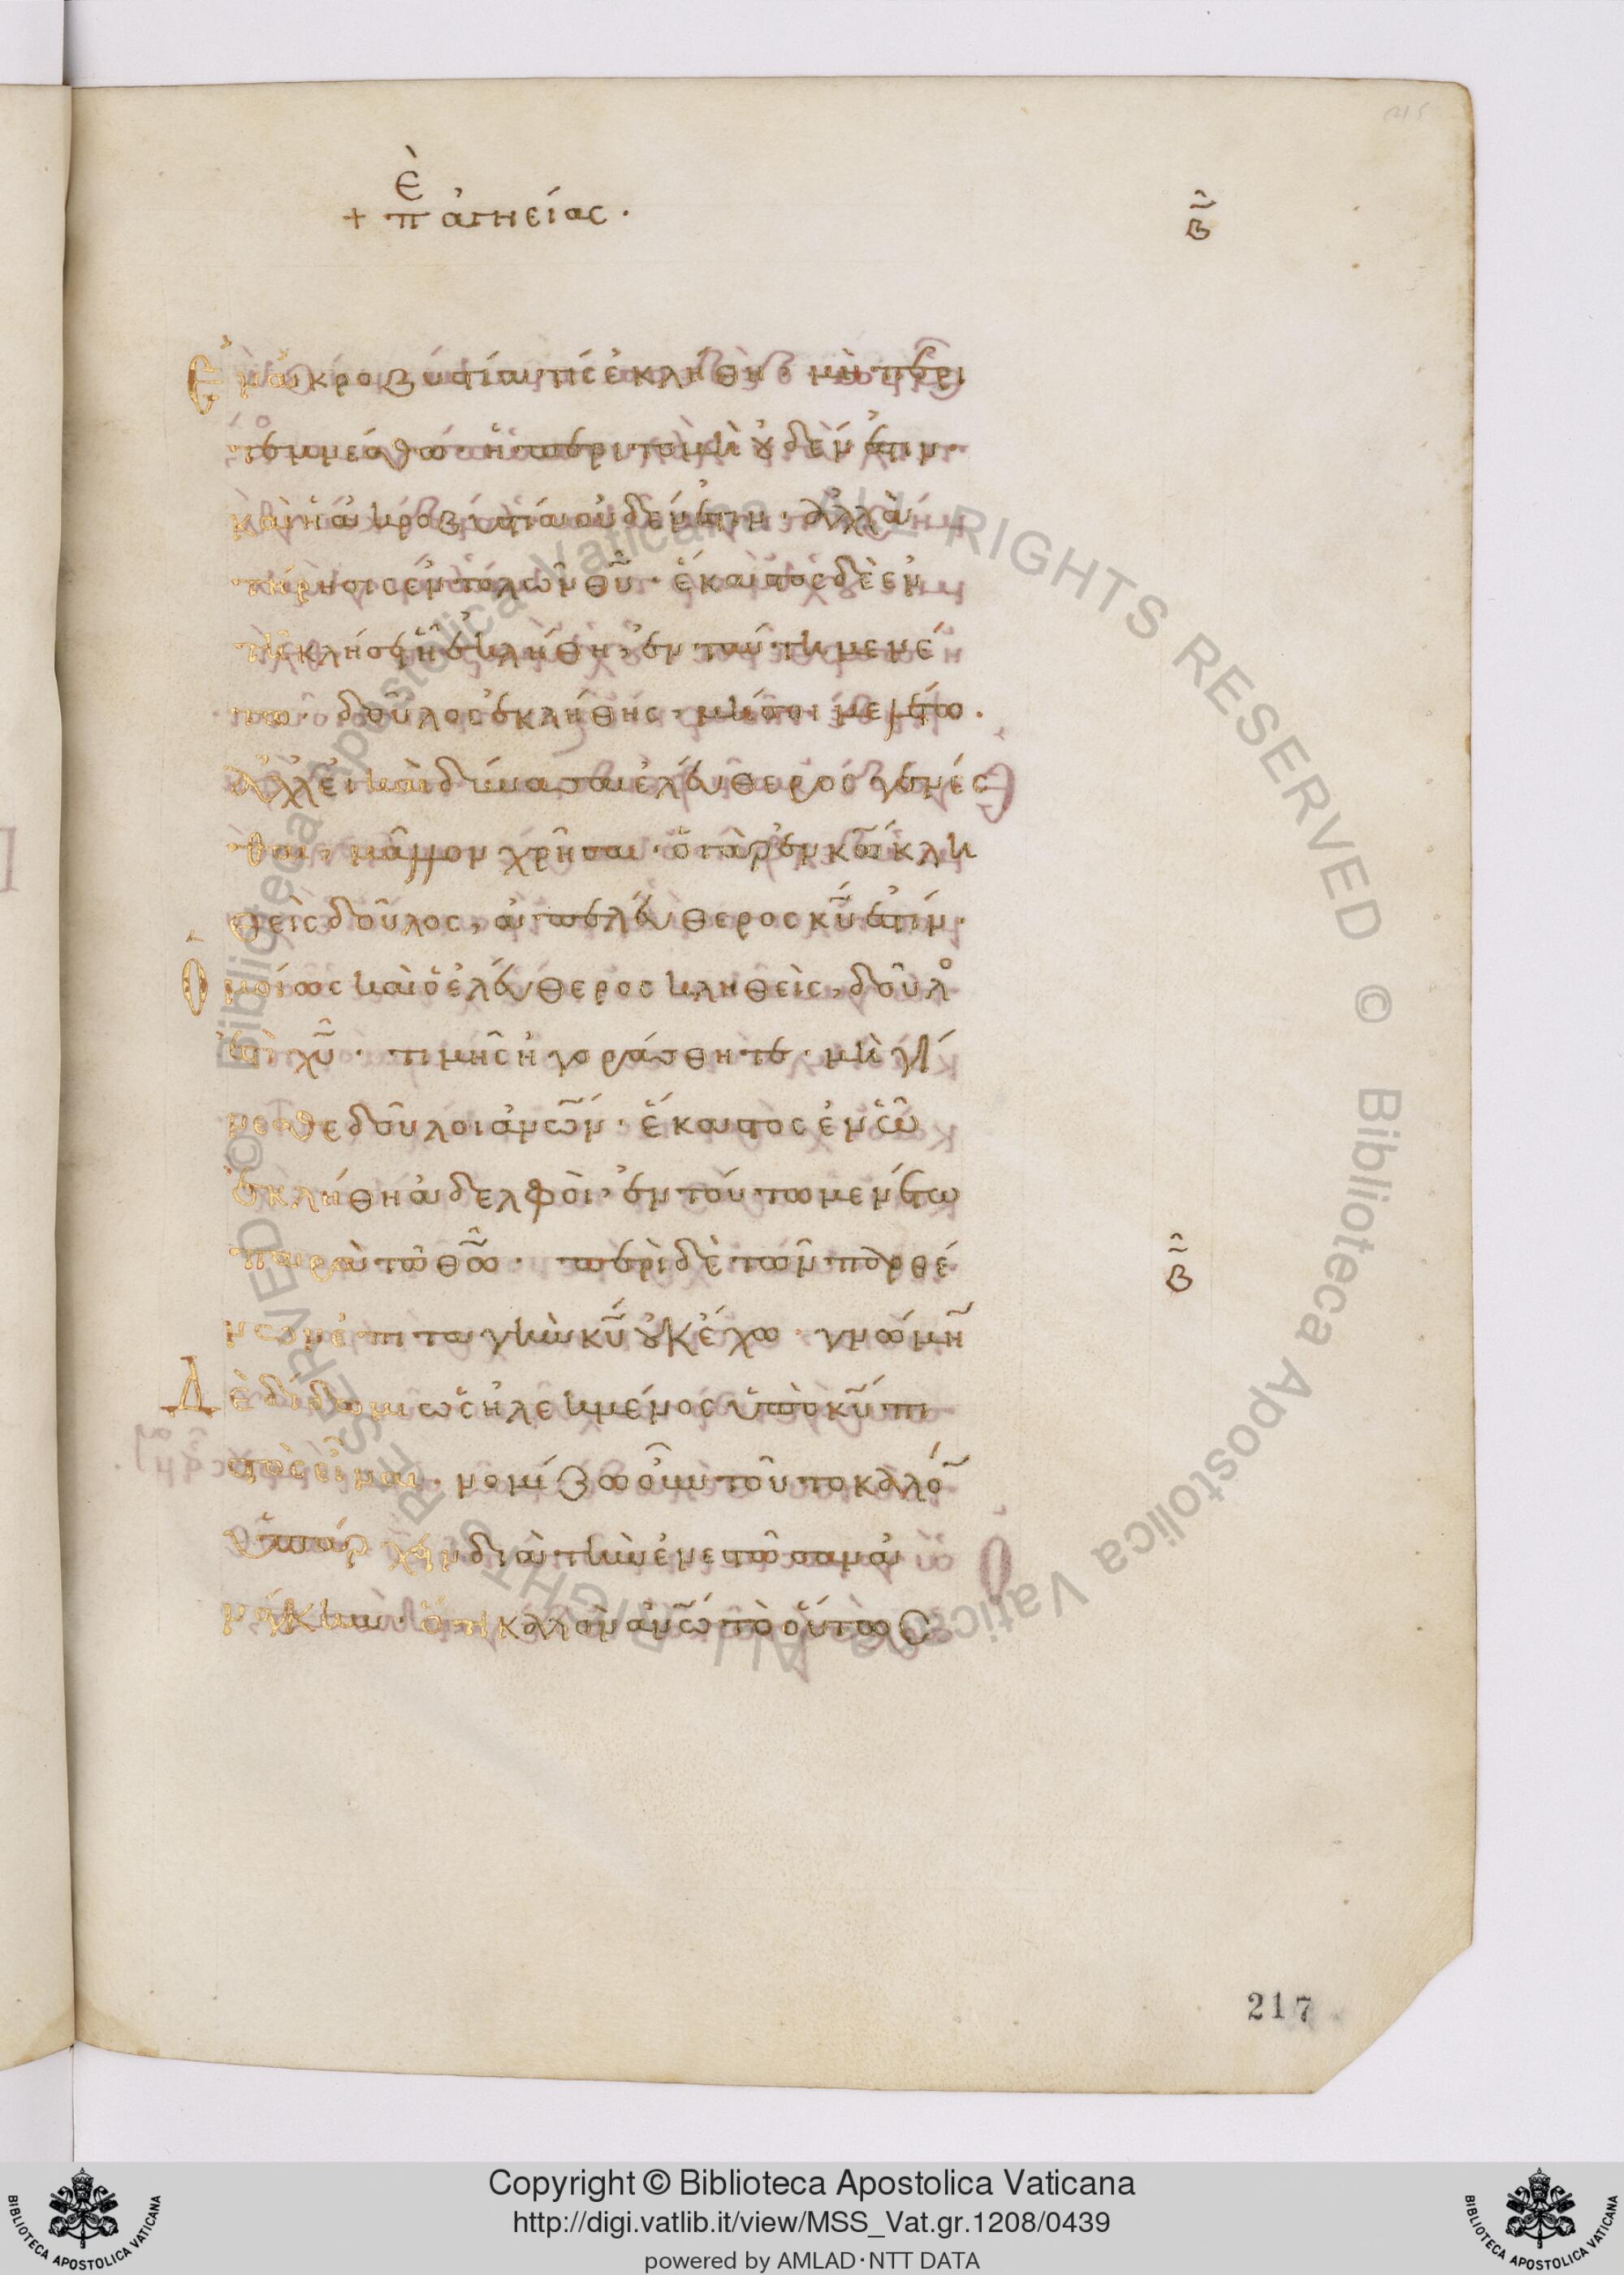 ἐ
+ π ἁγνείας.
β
Ἐν ἀκροβυστία τίς ἐκλήθη· μὴ περι
τεμνέσθω· ἡ περιτομὴ οὐδέν ἐστιν·
καὶ ἡ ἀκροβυστία οὐδέν ἐστιν· ἀλλὰ
τήρησις ἐντολῶν θυ̅· ἕκαστος δὲ ἐν
τῆ κλήσει ἧ ἐκλήθη, ἐν ταύτη μενέ
τω· δοῦλος ἐκλήθης, μή σοι μελέτω.
ἀλλ' εἰ καὶ δύνασαι ἐλεύθερος γενέσ
θαι, μᾶλλον χρῆσαι· ὁ γὰρ ἐν κω̅ κλη
θεὶς δοῦλος, ἀπελεύθερος κυ̅ ἐστίν·
Ὁμοίως καὶ ὁ ἐλεύθερος κληθεὶς, δοῦλο
ἐστὶ χυ̅· τιμῆς ἠγοράσθητε· μὴ γί
νεσθε δοῦλοι ἀνω̅ν· ἕκαστος ἐν ὧ
ἐκλήθη ἀδελφοὶ, ἐν τούτω μενέτω
παρὰ τῶ θω̅· περὶ δὲ τῶν παρθέ
νων ἐπιταγὴν κυ̅ οὐκ ἔχω· γνώμη̅
Δὲ δίδωμι ὡς ἠλεημένος ὑπὸ κυ̅ πι
στὸς εἶναι· νομίζω οὖν τοῦτο καλὸ̅
ὑπάρχειν διὰ τὴν ἐνεστῶσαν ἀ
νάγκην· ὅτι καλὸν ἀνω̅ τὸ οὕτως
β
217
Copyright © Biblioteca Apostolica Vaticana
http://digi.vatlib.it/view/MSS_Vat.gr.1208/0439
powered by AMLAD·NTT DATA
BIBLIOTECA APOSTOLICA VATICANA
BIBLIOTECA APOSTOLICA VATICANA
© Biblioteca Apostolica Vaticana ALL RIGHTS RESERVED © Biblioteca Apostolica Vaticana ALL RIGHTS RESERVED